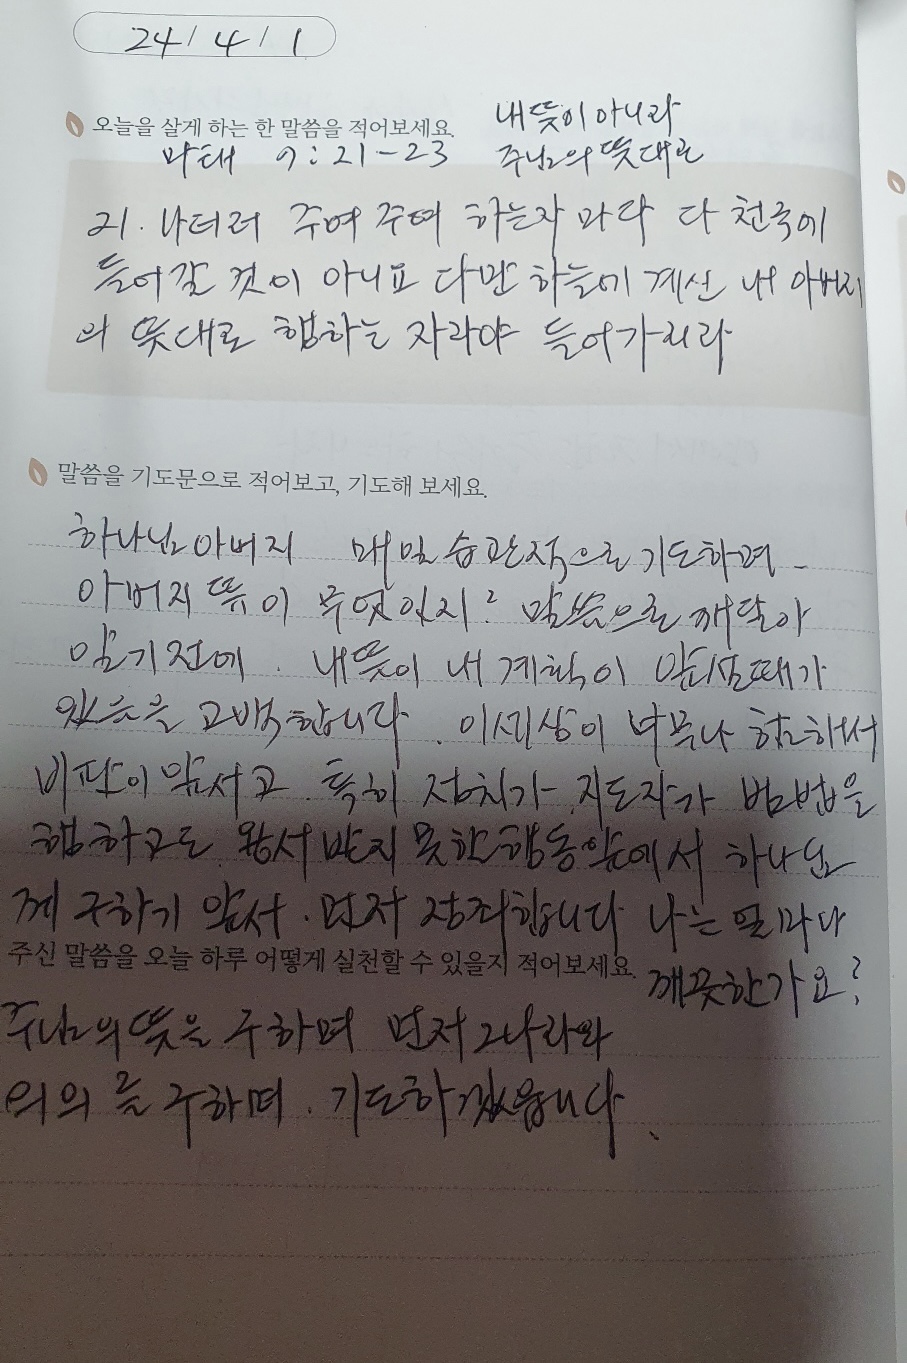 24 / 4 / 1
오늘을 살게 하는 한 말씀을 적어보세요.
내뜻이 아니라
주님의 뜻대로
마태 7:21-23
21. 나더러 주여 주여 하는자 마다 다 천국에
들어갈 것이 아니요 다만 하늘에 계신 내 아버지
의 뜻대로 행하는 자라야 들어가리라
말씀을 기도문으로 적어보고, 기도해 보세요.
하나님 아버지 매일 습관적으로 기도하며
아버지 뜻이 무엇인지? 말씀으로 깨달아
알기전에. 내뜻이 내 계획이 앞설때가
있음을 고백합니다. 이세상이 너무나 험해서
비판이 앞서고. 특히 정치가 지도자가 범법을
행하고도 용서 받지 못한 행동앞에서 하나님
께 구하기 앞서. 먼저 정죄합니다 나는 얼마나
깨끗한가요?
주신 말씀을 오늘 하루 어떻게 실천할 수 있을지 적어보세요.
주님의 뜻을 구하며 먼저 그나라와
의의를 구하며. 기도하겠읍니다.